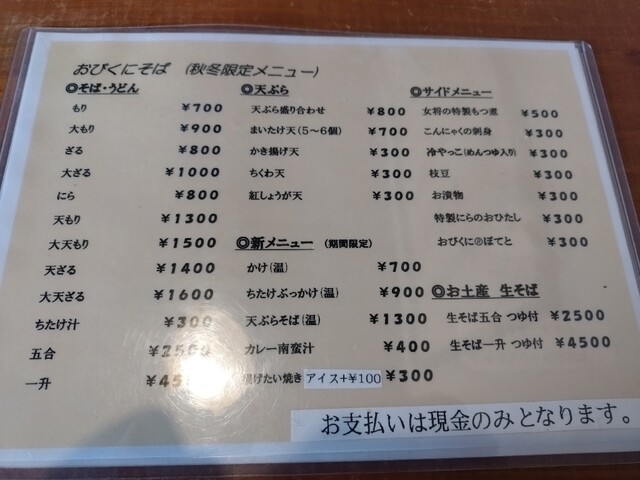 おびくにそば (秋冬限定メニュー)
◎そば・うどん
もり ¥700
大もり ¥900
ざる ¥800
大ざる ¥1000
にら ¥800
天もり ¥1300
大天もり ¥1500
天ざる ¥1400
大天ざる ¥1600
ちたけ汁 ¥300
五合 ¥2500
一升 ¥45
◎天ぷら
天ぷら盛り合わせ ¥800
まいたけ天(5~6個) ¥700
かき揚げ天 ¥300
ちくわ天 ¥300
紅しょうが天 ¥300
◎新メニュー (期間限定)
かけ(温) ¥700
ちたけぶっかけ(温) ¥900
天ぷらそば(温) ¥1300
カレー南蛮汁 ¥400
揚げたい焼き アイス+¥100 ¥300
◎サイドメニュー
女将の特製もつ煮 ¥500
こんにゃくの刺身 ¥300
冷やっこ(めんつゆ入り) ¥300
枝豆 ¥300
お漬物 ¥300
特製にらのおひたし ¥300
おびくに㋹ぽてと ¥300
◎お土産 生そば
生そば五合 つゆ付 ¥2500
生そば一升 つゆ付 ¥4500
お支払いは現金のみとなります。